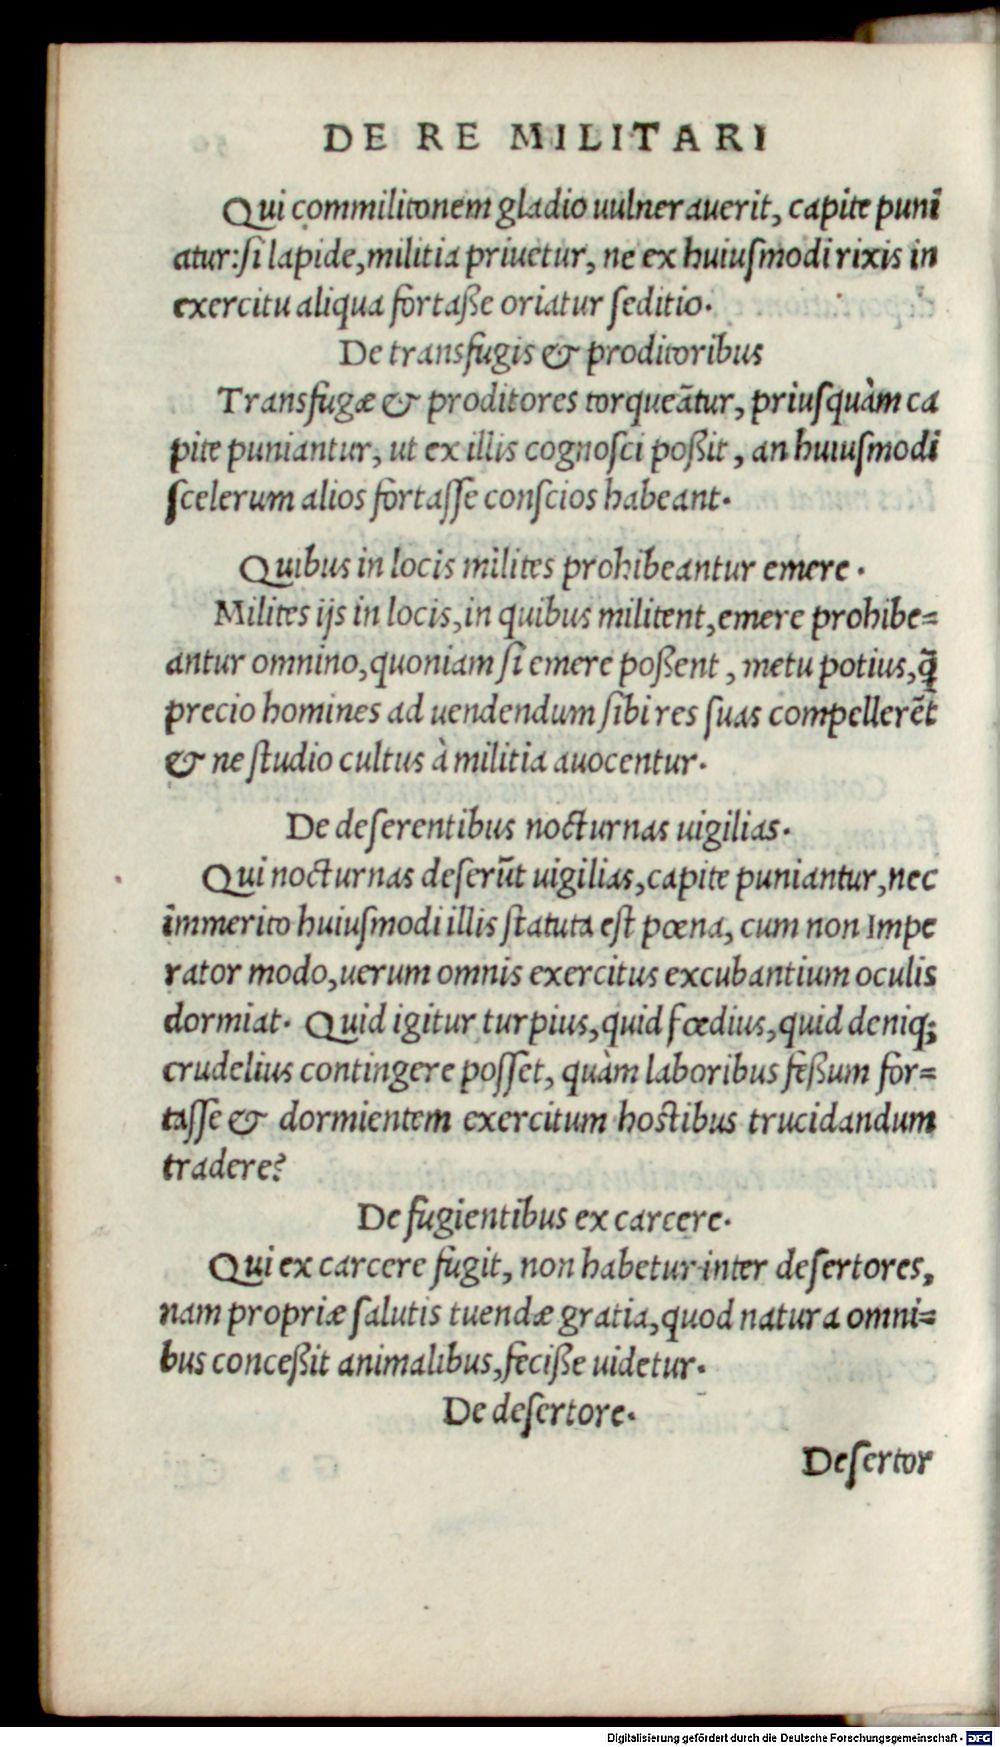 DE RE MILITARI
Qui commilitonem gladio uulnerauerit, capite puni
atur: si lapide, militia priuetur, ne ex huiusmodi rixis in
exercitu aliqua fortaße oriatur seditio.
De transfugis & proditoribus
Transfugæ & proditores torqueãtur, priusquàm ca
pite puniantur, ut ex illis cognosci poßit, an huiusmodi
scelerum alios fortasse conscios habeant.
Quibus in locis milites prohibeantur emere.
Milites ijs in locis, in quibus militent, emere prohibe=
antur omnino, quoniam si emere poßent, metu potius, q̃
precio homines ad uendendum sibi res suas compellerẽt
& ne studio cultus à militia auocentur.
De deserentibus nocturnas uigilias.
Qui nocturnas deserũt uigilias, capite puniantur, nec
immerito huiusmodi illis statuta est pœna, cum non Impe
rator modo, uerum omnis exercitus excubantium oculis
dormiat. Quid igitur turpius, quid fœdius, quid deniq;
crudelius contingere posset, quàm laboribus feßum for=
tasse & dormientem exercitum hostibus trucidandum
tradere?
De fugientibus ex carcere.
Qui ex carcere fugit, non habetur inter desertores,
nam propriæ salutis tuendæ gratia, quod natura omni=
bus conceßit animalibus, feciße uidetur.
De desertore.
Desertor
Digitalisierung gefördert durch die Deutsche Forschungsgemeinschaft - DFG